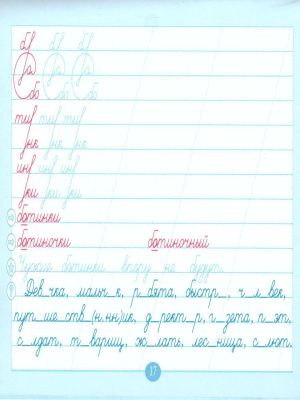 бу бу бу
уа уа уа
бо бо бо
тиу тиу тиу
унк унк унк
уни уни уни
уки уки уки
ботинки
ботиночки ботиночный
Чужие ботинки впору не будут.
Дев_чка, мальч_к, р_бята, быстр_, ч_л_век,
пут_ше_ств_(н,нн)ик, д_рект_р, г_зета, п_эт,
с_лдат, т_варищ, ж_лать, лес_ница, с_лют.
17